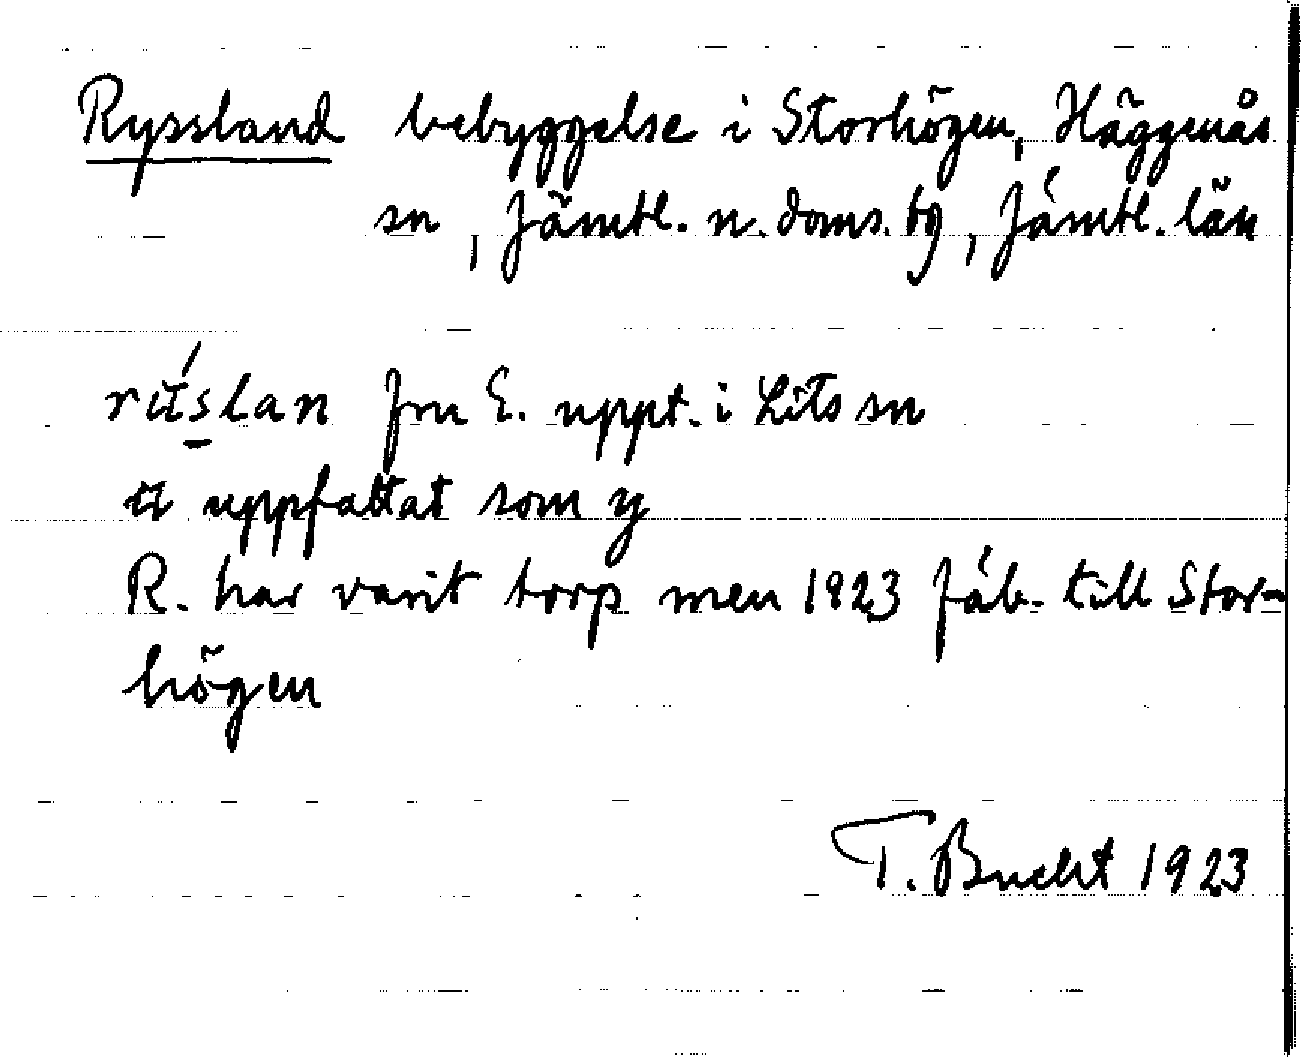 Ryssland bebyggelse i Storhögen, Häggenås
sn, Jämtl. n. doms. tg, Jämtl. län
fru E. uppt. i Lits sn
uppfattat som y
R. har varit torp men 1923 fäb. till Stor-
högen
T. Bucht 1923